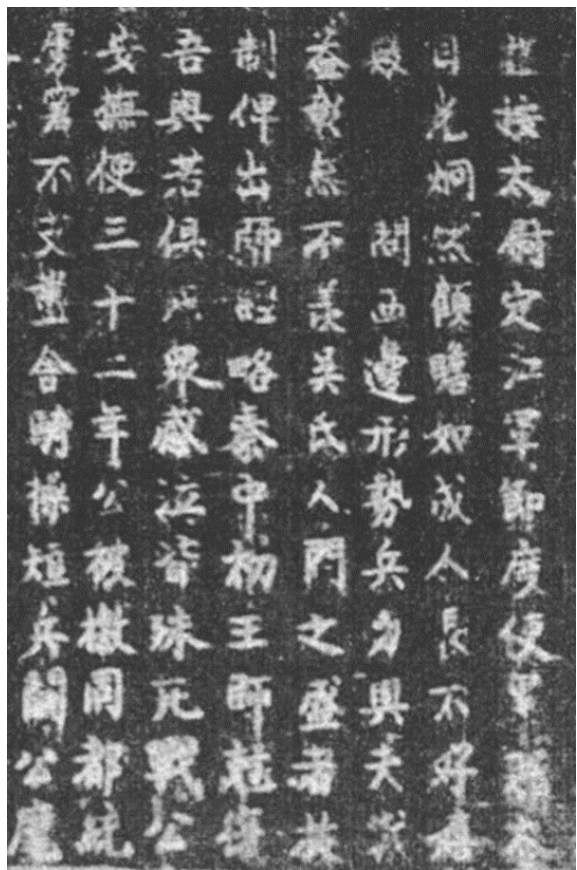 接太尉定江軍節度使
目光炯然顧瞻如成人長不好嬉
殿 問西邊形勢兵力與夫戰
益 不羨吳氏人門之盛者故
制俾出師經略秦中初王師
吾與若俱 眾感泣皆殊死戰公
安撫使三十二年公被檄同都統
虜窘不支盡舍騎操短兵鬭公麾